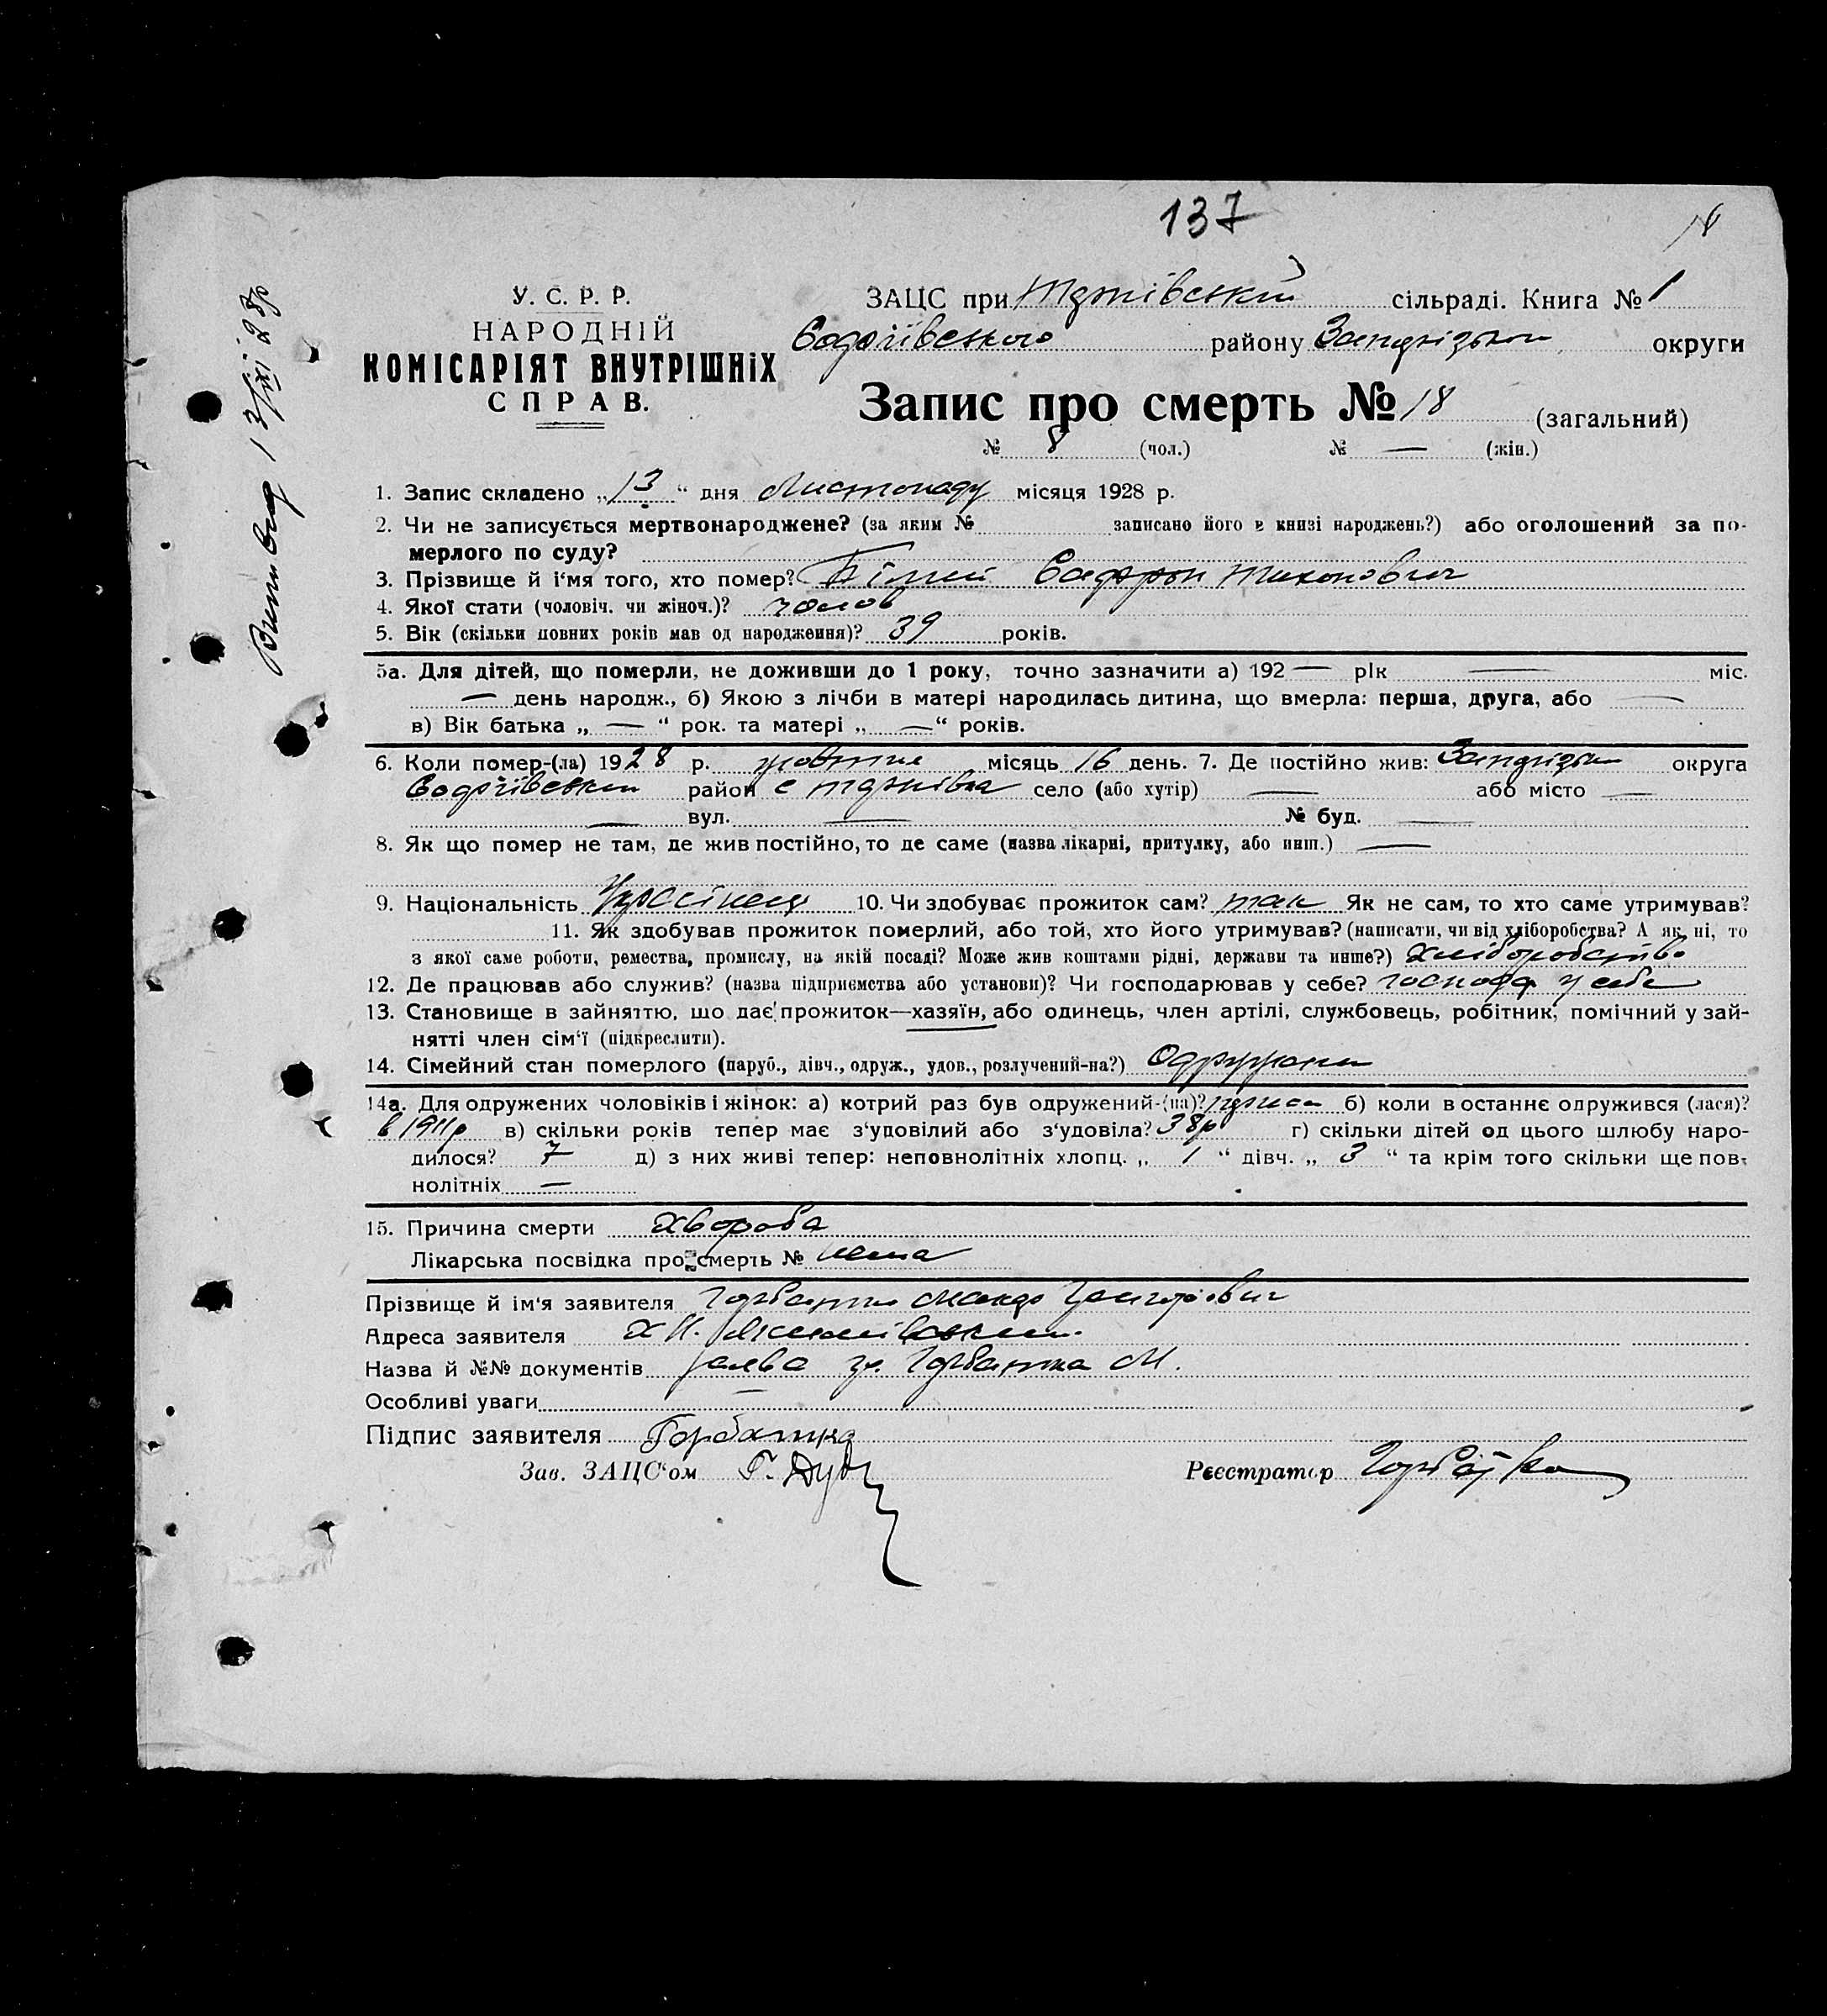 137
У. С. Р. Р.
НАРОДНІЙ
КОМІСАРІЯТ ВНУТРІШНІХ
СПРАВ.
ЗАЦС при сільраді. Книга № 1
району округи
Запис про смерть № 18 (загальний)
№ 8 (чол.) № — (жін.)
1. Запис складено „13“ дня Листопаду місяця 1928 р.
2. Чи не записується мертвонароджене? (за яким № записано його в книзі народжень?) або оголошений за по-
мерлого по суду?
3. Прізвище й і'мя того, хто помер? Сафрон Тихонович
4. Якої стати (чоловіч. чи жіноч.)? чолов
5. Вік (скільки повних років мав од народження)? 39 років.
5а. Для дітей, що померли, не доживши до 1 року, точно зазначити а) 192 — рік — міс.
— день народж., б) Якою з лічби в матері народилась дитина, що вмерла: перша, друга, або —
в) Вік батька „ — “ рок. та матері „ — “ років.
6. Коли помер-(ла) 1928 р. жовтня місяць 16 день. 7. Де постійно жив: округа
район с село (або хутір) — або місто —
— вул. — № буд. —
8. Як що помер не там, де жив постійно, то де саме (назва лікарні, притулку, або инш.) —
9. Національність Українець 10. Чи здобуває прожиток сам? так Як не сам, то хто саме утримував?
11. Як здобував прожиток померлий, або той, хто його утримував? (написати, чи від хліборобства? А як ні, то
з якої саме роботи, ремества, промислу, на якій посаді? Може жив коштами рідні, держави та инше?) хліборобство
12. Де працював або служив? (назва підприємства або установи)? Чи господарював у себе? господар у себе
13. Становище в зайняттю, що дає прожиток—хазяїн, або одинець, член артілі, службовець, робітник, помічний у зай-
нятті член сім'ї (підкреслити).
14. Сімейний стан померлого (паруб., дівч., одруж., удов., розлучений-на?) Одружен
14а. Для одружених чоловіків і жінок: а) котрий раз був одружений-(на)? б) коли востаннє одружився (лася)?
в 1911р в) скільки років тепер має з'удовілий або з'удовіла? 38р г) скільки дітей од цього шлюбу наро-
дилося? 7 д) з них живі тепер: неповнолітніх хлопц. „ 1 “ дівч. „ 3 “ та крім того скільки ще пов-
нолітніх —
15. Причина смерти хвороба
Лікарська посвідка про смерть № нема
Прізвище й ім'я заявителя
Адреса заявителя
Назва й №№ документів заява гр. Горбатка М.
Особливі уваги —
Підпис заявителя Горбатка
Зав. ЗАЦС'ом Г. Реєстратор
13/XI 28р